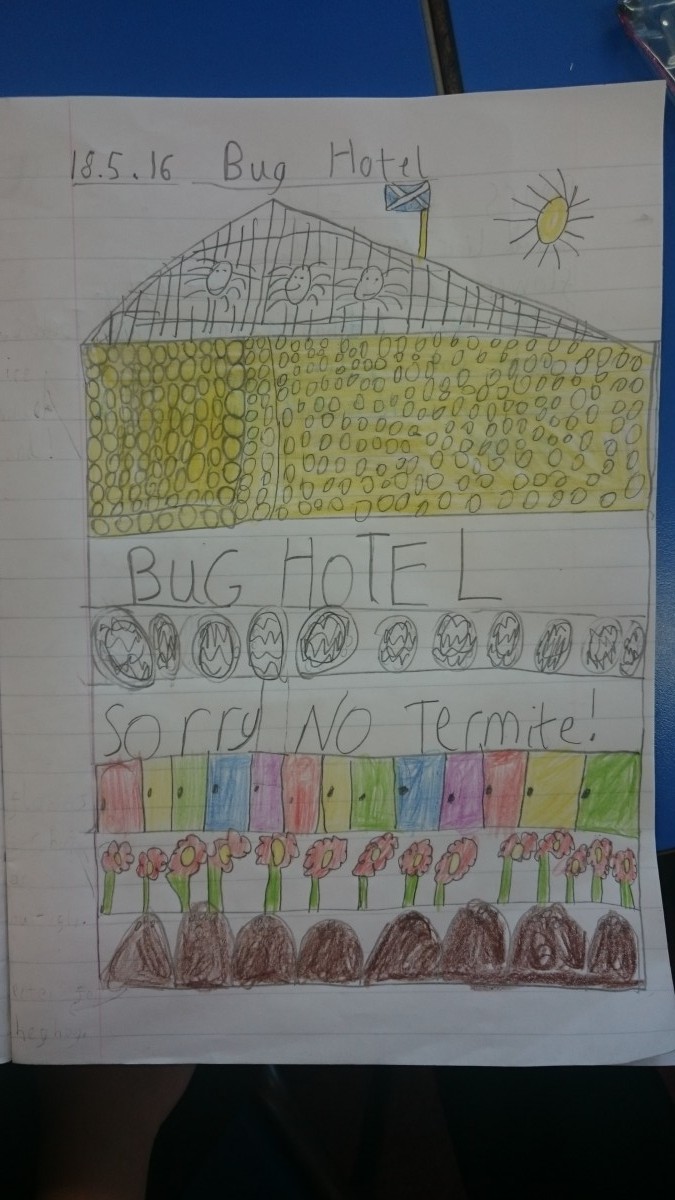 18.5.16 Bug Hotel
BUG HOTEL
Sorry NO Termite!